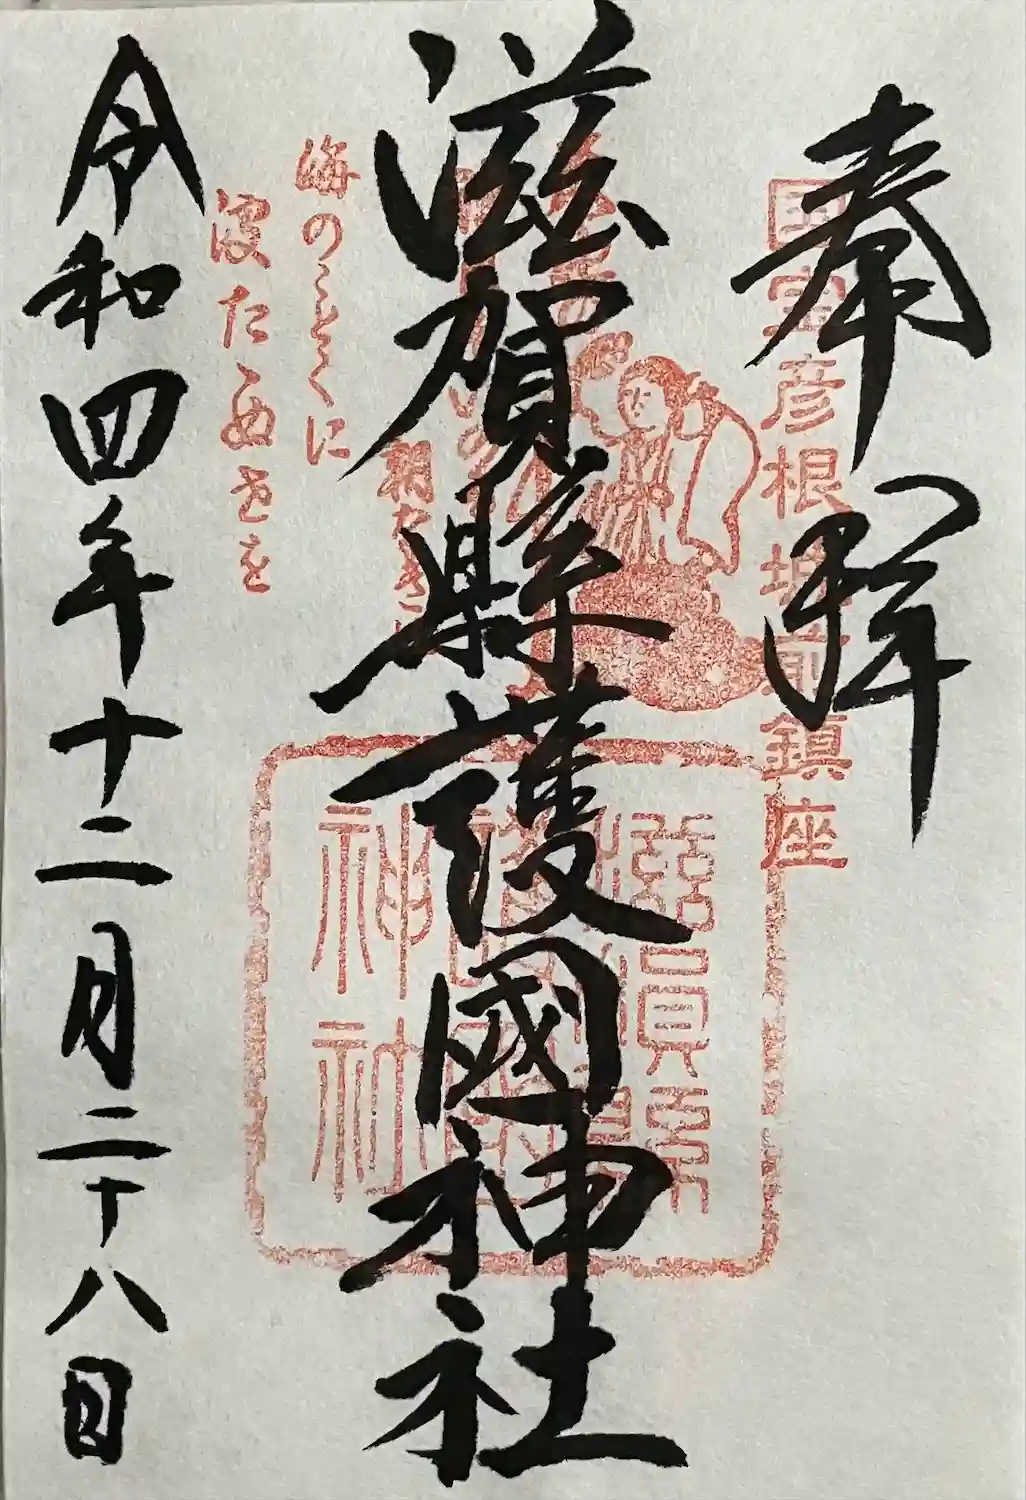 奉拝
国宝彦根城前鎮座
滋賀縣護國神社
滋賀県護国神社
海のことくに
波たゝぬ世を
令和四年十二月二十八日